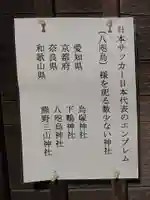 日本サッカー日本代表のエンブレム
(八咫烏)様を祀る数少ない神社
愛知県　烏塚神社
京都府　下鴨神社
奈良県　八咫烏神社
和歌山県　熊野三山神社